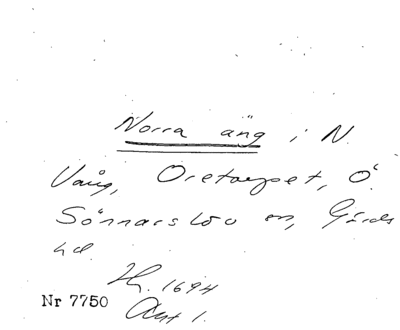 Norra äng i N.
Vång, Oretorpet, Ö.
Sönnarslöv sn, Gärds
hd.
Nr 7750
Akt 1.